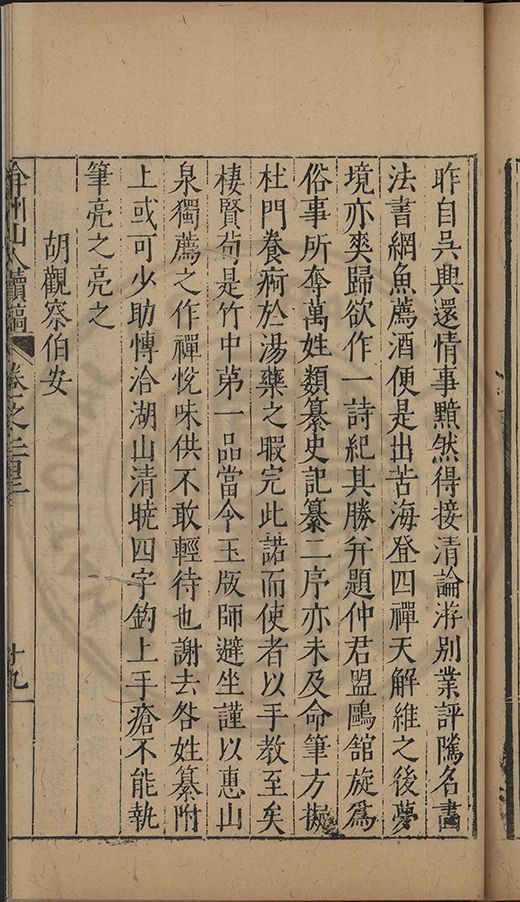 昨自吳興還情事黯然得接清論游別業評隲名畫
法書網魚薦酒便是出苦海登四禪天解維之後夢
境亦爽歸欲作一詩紀其勝并題仲君盟鷗舘旋爲
俗事所奪萬姓類纂史記纂二序亦未及命筆方擬
杜門養痾於湯藥之暇完此諾而使者以手教至矣
棲賢荀是竹中苐一品當令玉版師避坐謹以惠山
泉獨薦之作禪悅味供不敢輕待也謝去咎姓纂附
上或可少助愽洽湖山清曉四字鈎上手瘡不能執
筆亮之亮之
胡觀察伯安
弇州山人續稿 卷之
十九